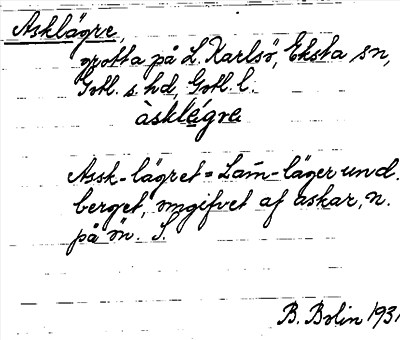 Asklägre,
grotta på L. Karlsö, Eksta sn,
Gotl. s. hd, Gotl. l.
àsklégre
Assk-lägret = Lam-läger und.
berget, omgifvet af askar, n.
på ön. S.
B. Bolin 1931